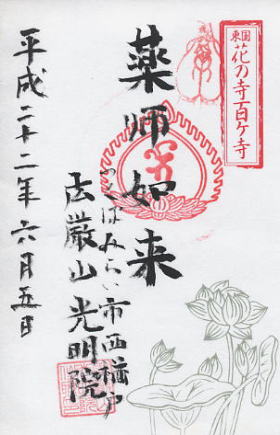 東国
花の寺百ヶ寺
薬師如来
つくばみらい市西楢戸
法厳山光明院
平成二十二年六月五日